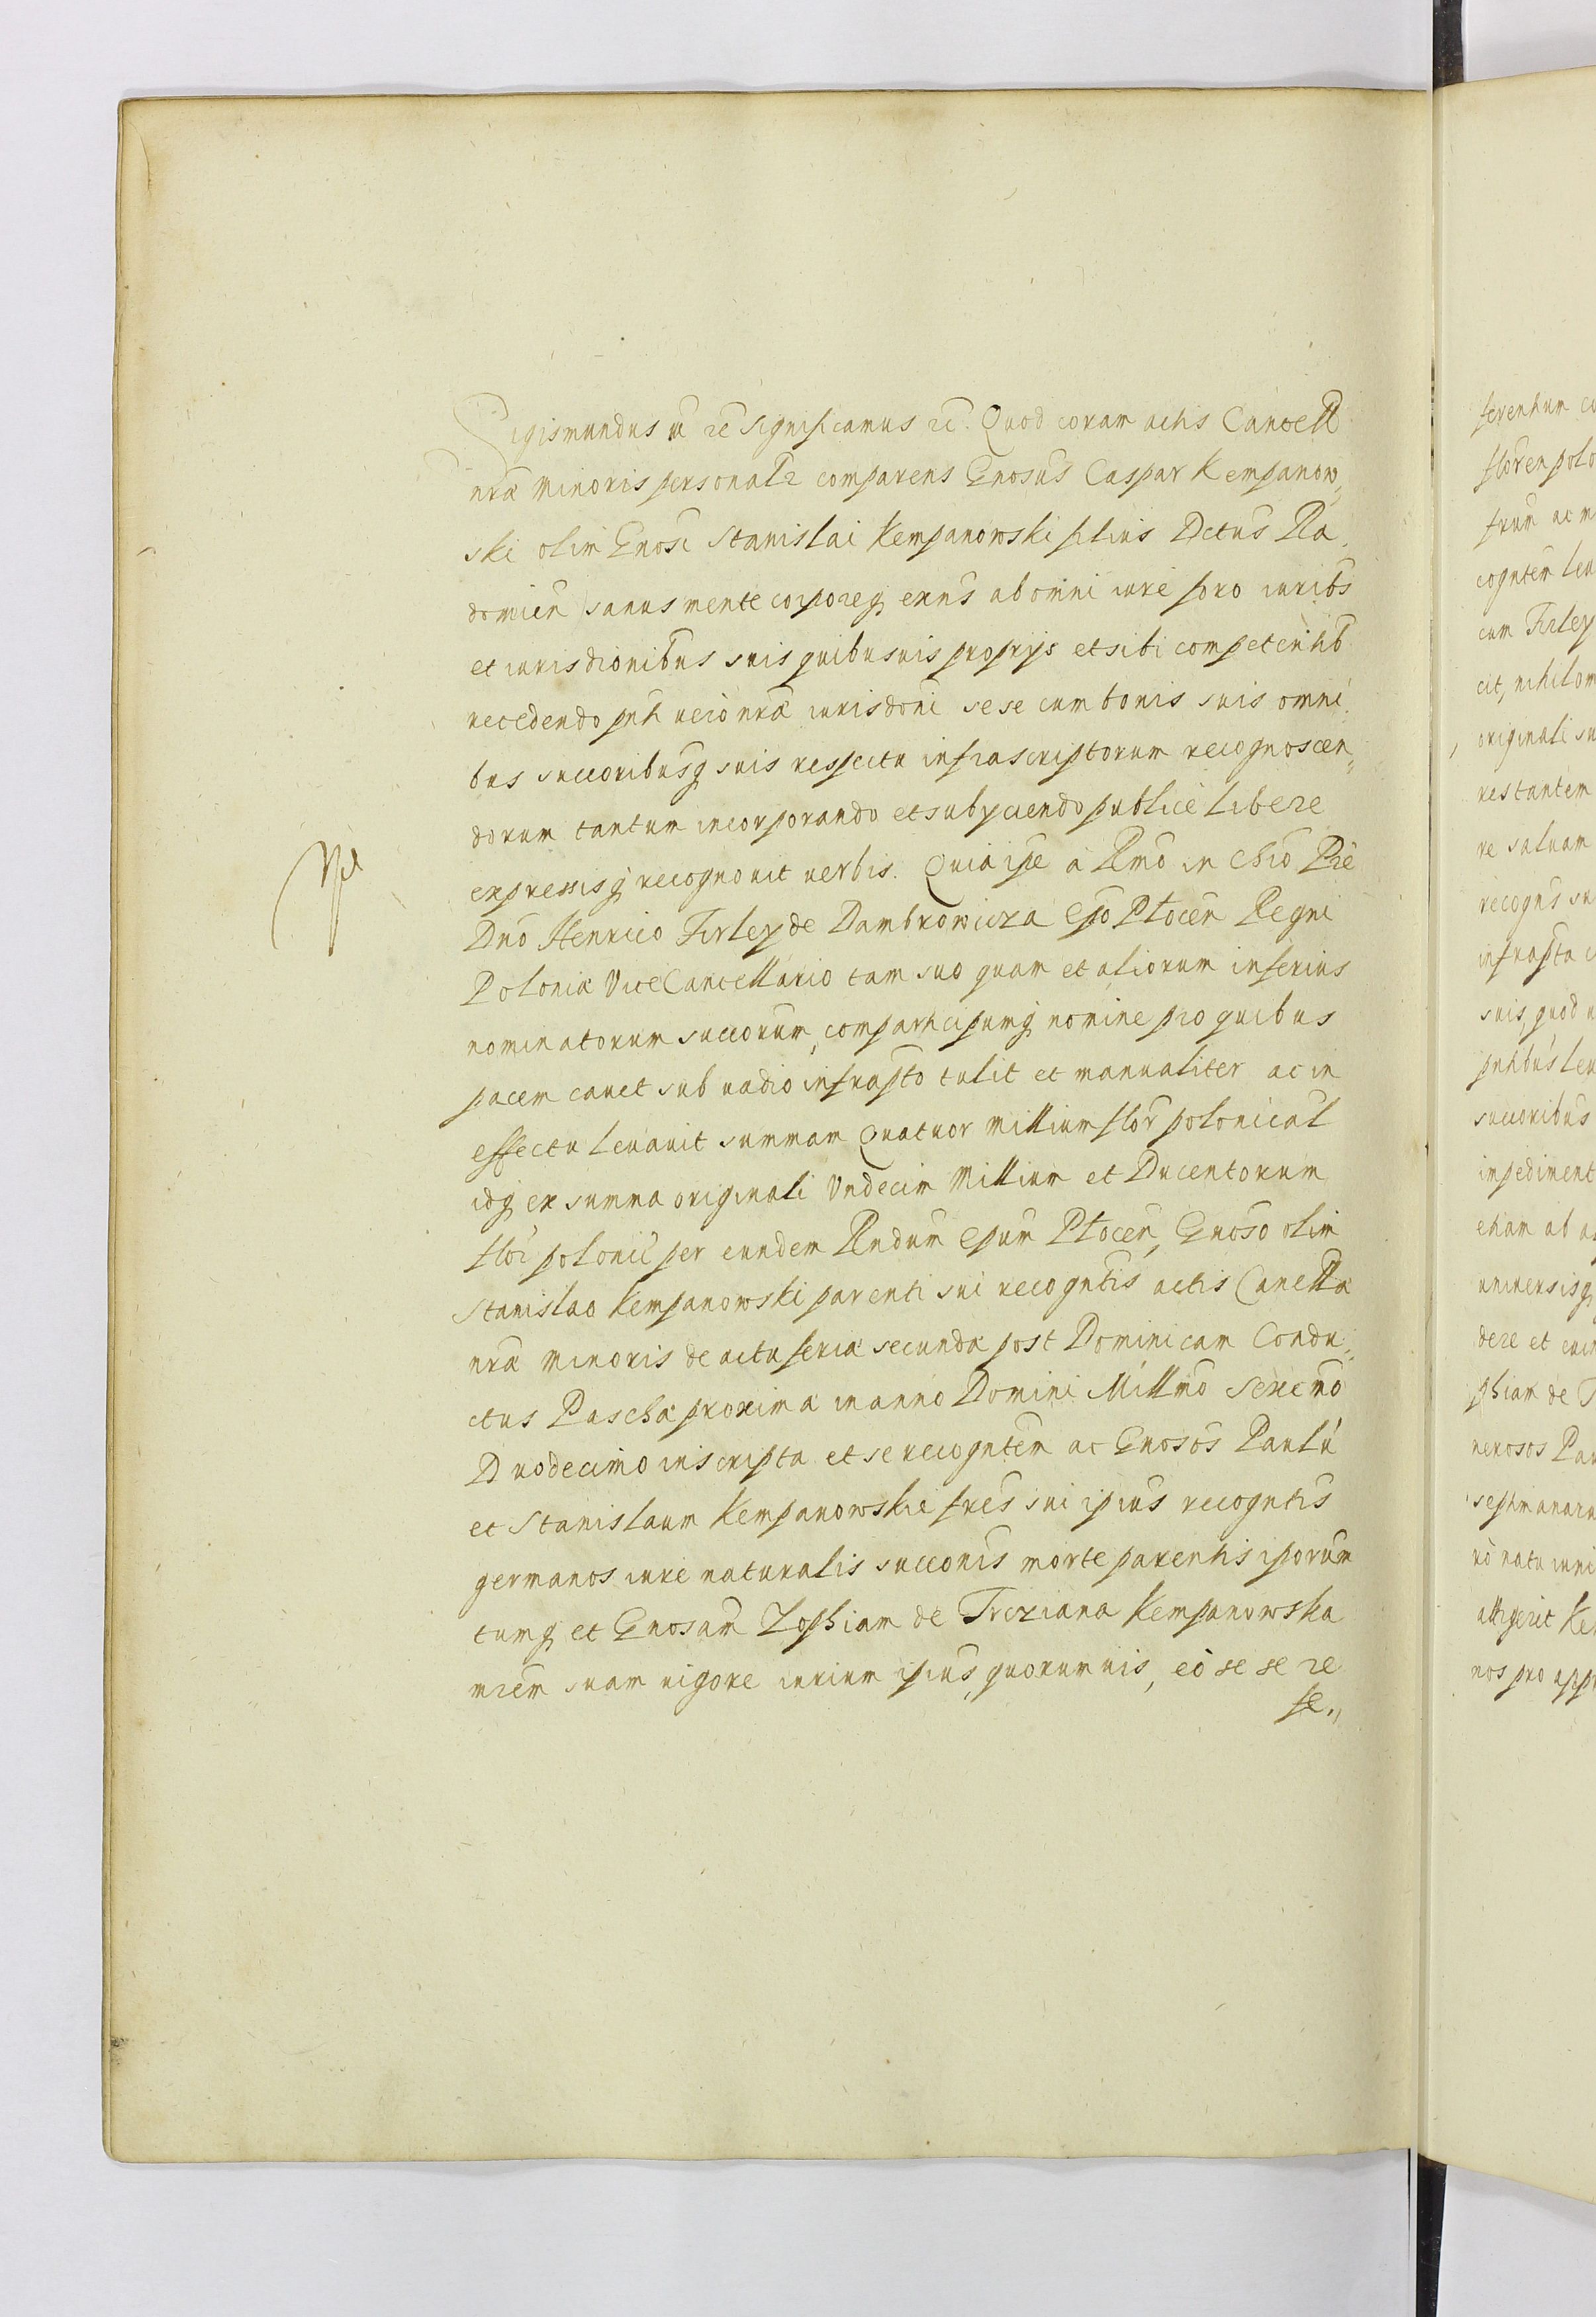 Sigismundus etc significamus etc. Quod coram actis Cancell
nrae Minoris personalr comparens Gnosus Caspar Kempanow,,
ski olim Gnosi Stanislai Kempanowski filius Dctus Ra,,
domien sanus mente corporeq exns ab omni iure foro iuribs
et iurisdionibus suis quibusuis proprijs et sibi competentib
recedendo pnti uero nrae iurisdoni sese cum bonis suis omni,,
bus succoribusq suis respectu infrascriptorum recognoscen,,
dorum tantum incorporando et subyciendo publice libere
expressisq recognouit uerbis. Quia ipe à Rmo in Chro Pre
Dno Henrico Firley de Dambrowicza Epo Plocen Regni
Poloniae ViceCancellario tam suo quam et aliorum inferius
nominatorum succorum, comparticipumq nomine pro quibus
pacem cauet sub uadio infrapto tulit et manualiter ac in
effectu leuauit summam Quatuor Millium flor polonical
idq ex summa originali Vndecim Millium et Ducentorum
flor polonic per eundem Rndum Epum Plocen, Gnoso olim
Stanislao Kempanowski parenti sui recogntis actis Cancllae
nrae Minoris de actu feria secunda post Dominicam Condu,,
ctus Paschae proxima in anno Domini Millmo Sexcmo
Duodecimo inscripta et se recogntem ac Gnosos Paulu
et Stanislaum Kempanowskie fres sui ipius recogntis
germanos iure naturalis succonis morte parentis iporum
tumq et Gnosam Zophiam de Trcziana Kempanowska
mrem suam uigore iurium ipius, quorumuis, eò se se re
fe,,
ferentum
floren polo
frum ac
cogntem leu
cum Firley
cit, nihilom
originali su
restantem
re saluam
recogns su
infrapta
suis, quod
pntibus leu
succoribus
impediment
etiam ab
uniuersisq
dere et
phiam de T
nerosos Pau
septimanaru
rò natu
attigerit Ke
nos pro app